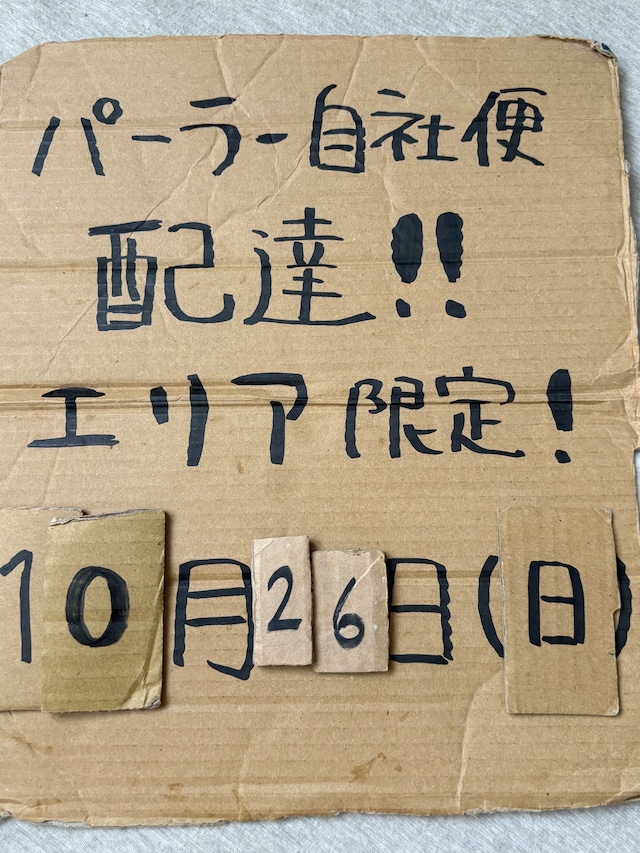 パーラー自社便
配達!!
エリア限定!
10月26日(日)